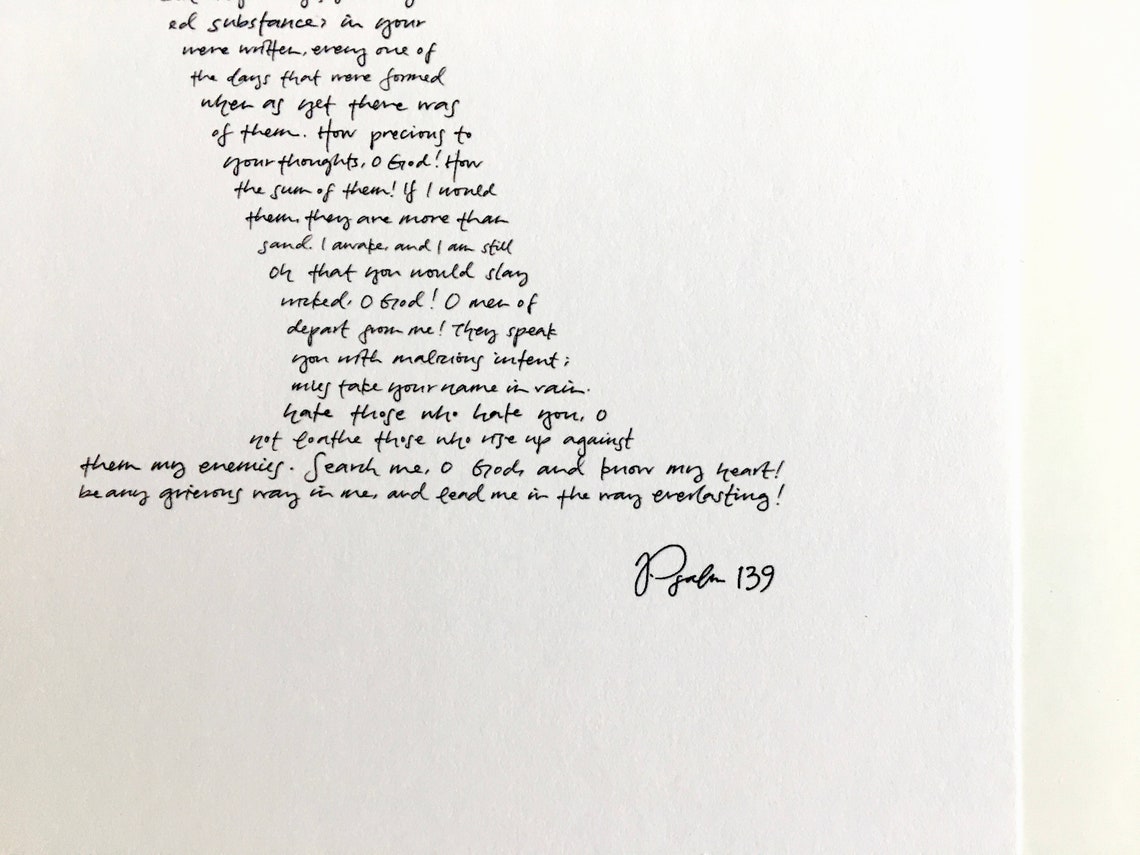 ed substance; in your
were written, every one of
the days that were formed
when as yet there was
of them. How precious to
your thoughts, O God! How
the sum of them! If I would
them, they are more than
sand. I awake, and I am still
Oh that you would slay
wicked, O God! O men of
depart from me! They speak
you with malicious intent;
mies take your name in vain.
hate those who hate you, O
not loathe those who rise up against
them my enemies. Search me, O God, and know my heart!
be any grievous way in me, and lead me in the way everlasting!
Psalm 139